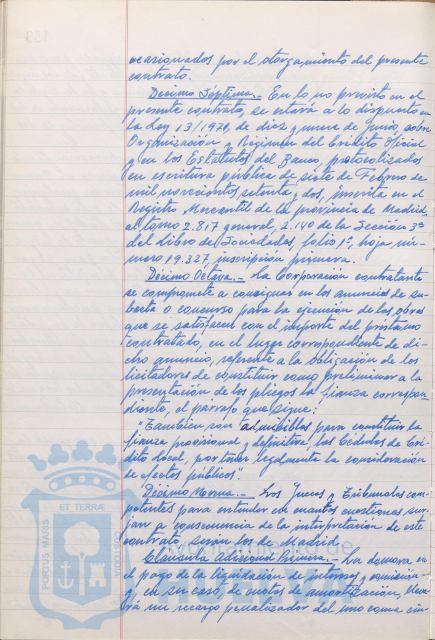 ocasionados por el otorgamiento del presente
contrato.
Décimo Séptima.- En lo no previsto en el
presente contrato, se estará a lo dispuesto en
la Ley 13/1971, de diez y nueve de Junio, sobre
Organización y Régimen del Crédito Oficial
y en los Estatutos del Banco, protocolizados
en escritura pública de siete de Febrero de
mil novecientos setenta y dos, inscrita en el
Registro Mercantil de la provincia de Madrid
al tomo 2.817 general, 2.140 de la Sección 3ª
del Libro de Sociedades, folio 1º, hoja nú-
mero 19.327, inscripción primera.
Décimo Octava.- La Corporación contratante
se compromete a consignar en los anuncios de su-
basta o concurso para la ejecución de las obras
que se satisfacen con el importe del préstamo
contratado, en el lugar correspondiente de di-
cho anuncio, referente a la obligación de los
licitadores de constituir como preliminar a la
presentación de los pliegos la fianza correspon-
diente, el párrafo que sigue:
"También son admisibles para constituir la
fianza provisional y definitiva, las Cédulas de Cré-
dito local, por tener legalmente la consideración
de efectos públicos".
Décimo Novena.- Los Jueces y Tribunales com-
petentes para entender en cuantas cuestiones sur-
jan a consecuencia de la interpretación de este
contrato, serán los de Madrid.
Clausula Adicional Primera.- La demora en
el pago de la liquidación de intereses y comisión
y, en su caso, de cuotas de amortización, deven-
rá un recargo penalizador del uno coma cin-
ET TERRÆ
PORTUS MARIS
CUSTODIA
de